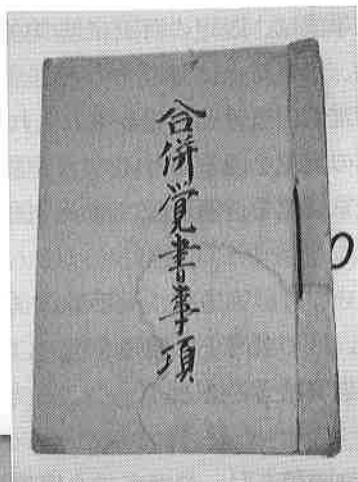 合併覚書事項